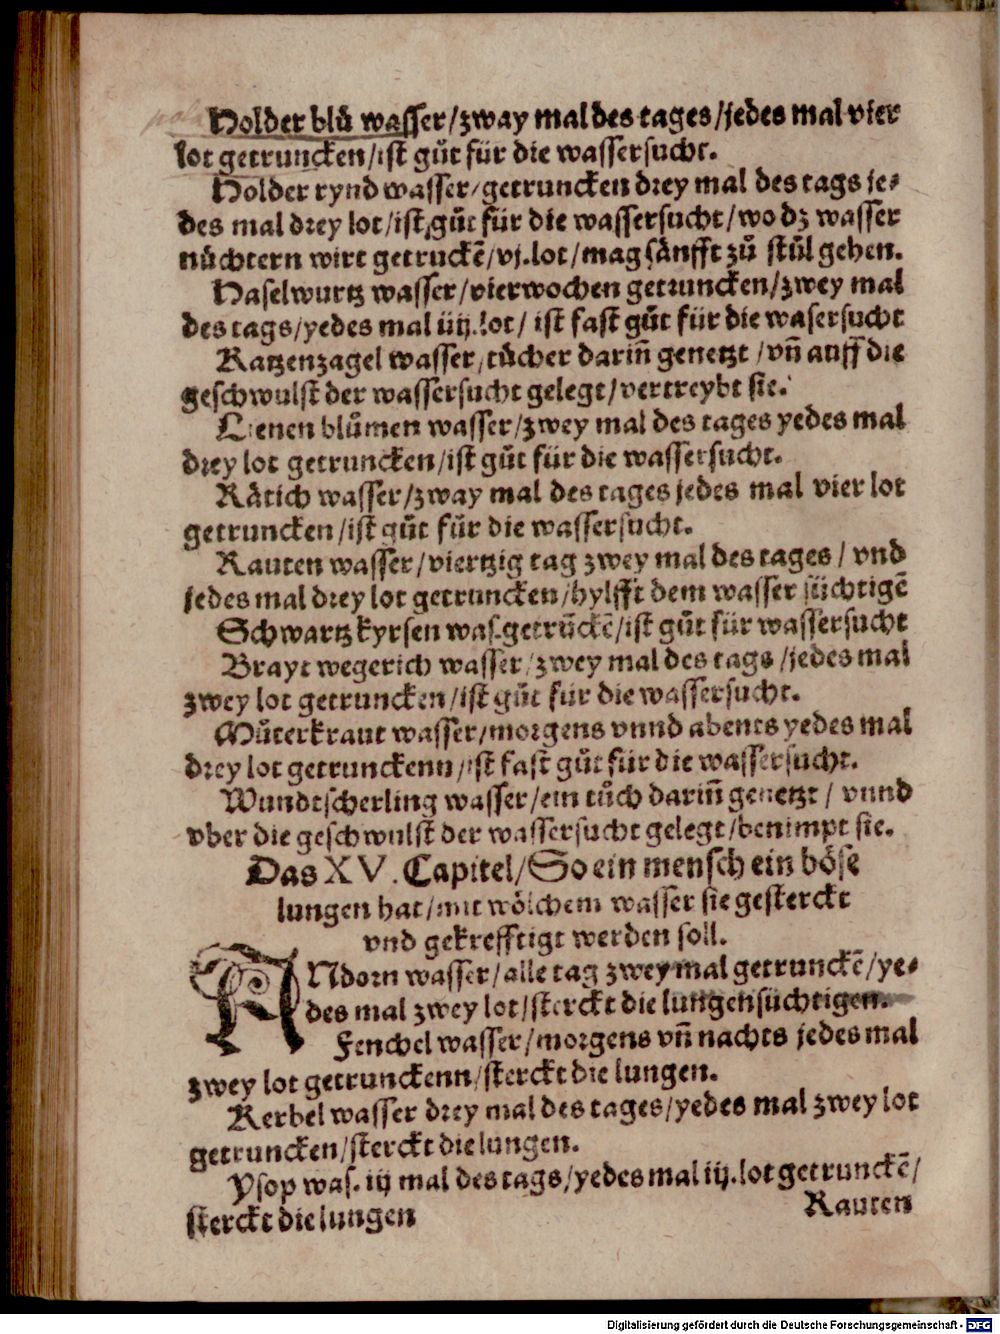 Holder blů wasser/zway mal des tages/jedes mal vier
lot getruncken/ist gůt für die wassersucht.
Holder rynd wasser/getruncken drey mal des tags je⸗
des mal drey lot/ist gůt für die wassersucht/wo dz wasser
nůchtern wirt getruckē/vj.lot/mag sånfft zů stůl gehen.
Haselwurtz wasser/vierwochen getruncken/zwey mal
des tags/yedes mal iiij.lot/ ist fast gůt für die wasersucht
Katzenzagel wasser/tůcher dariñ genetzt /vñ auff die
geschwulst der wassersucht gelegt/vertreybt sie.
Lienen blůmen wasser/zwey mal des tages yedes mal
drey lot getruncken/ist gůt für die wassersucht.
Råtich wasser/zway mal des tages jedes mal vier lot
getruncken/ist gůt für die wassersucht.
Rauten wasser/viertzig tag zwey mal des tages/ vnd
jedes mal drey lot getruncken/hylfft dem wasser süchtigē
Schwartz kyrsen was.getrūckē/ist gůt für wassersucht
Brayt wegerich wasser/zwey mal des tags /jedes mal
zwey lot getruncken/ist gůt für die wassersucht.
Můterkraut wasser/morgens vnnd abents yedes mal
drey lot getrunckenn/ist fast gůt für die wassersucht.
Wundtscherling wasser/ein tůch dariñ genetzt/ vnnd
vber die geschwulst der wassersucht gelegt/benimpt sie.
Das XV. Capitel/So ein mensch ein böse
lungen hat/mit wölchem wasser sie gesterckt
vnd gekrefftigt werden soll.
ANdorn wasser/alle tag zwey mal getrunckē/ye⸗
des mal zwey lot/sterckt die lungensüchtigen.
Fenchel wasser/morgens vñ nachts jedes mal
zwey lot getrunckenn/sterckt die lungen.
Kerbel wasser drey mal des tages/yedes mal zwey lot
getruncken/sterckt die lungen.
Ysop was. iij mal des tags/yedes mal iij.lot getrunckē/
sterckt die lungen
Rauten
Digitalisierung gefördert durch die Deutsche Forschungsgemeinschaft - DFG